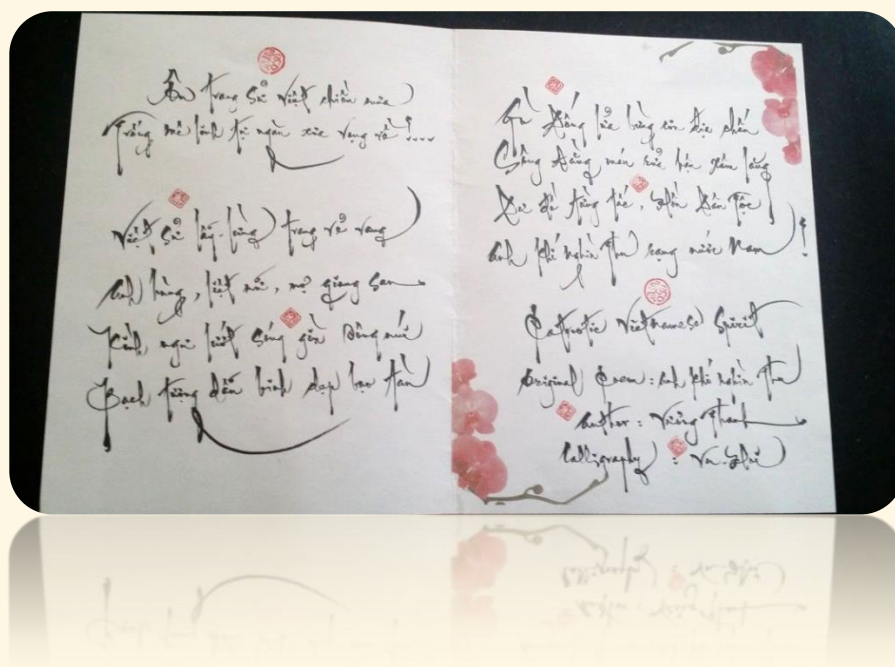 Ôn trang Sử Việt chiều mưa
Trống mê linh tự ngàn xưa vọng về!....
Việt Sử lẫy-lừng trang vẻ vang
Anh hùng, liệt nữ, mở giang san
Kình ngư lướt sóng gìn sông núi
Bạch tượng dẫn binh dẹp bạo tàn
Gò Đống lửa bừng cơn địa chấn
Sông Đằng máu rửa hận xâm lăng
Dư đồ từng tấc, Hồn Dân Tộc
Anh khí nghìn Thu rạng nước Nam!
Patriotic Vietnamese Spirit
Original Poem: Anh khí nghìn Thu
Author: Vương Thanh
Calligraphy: